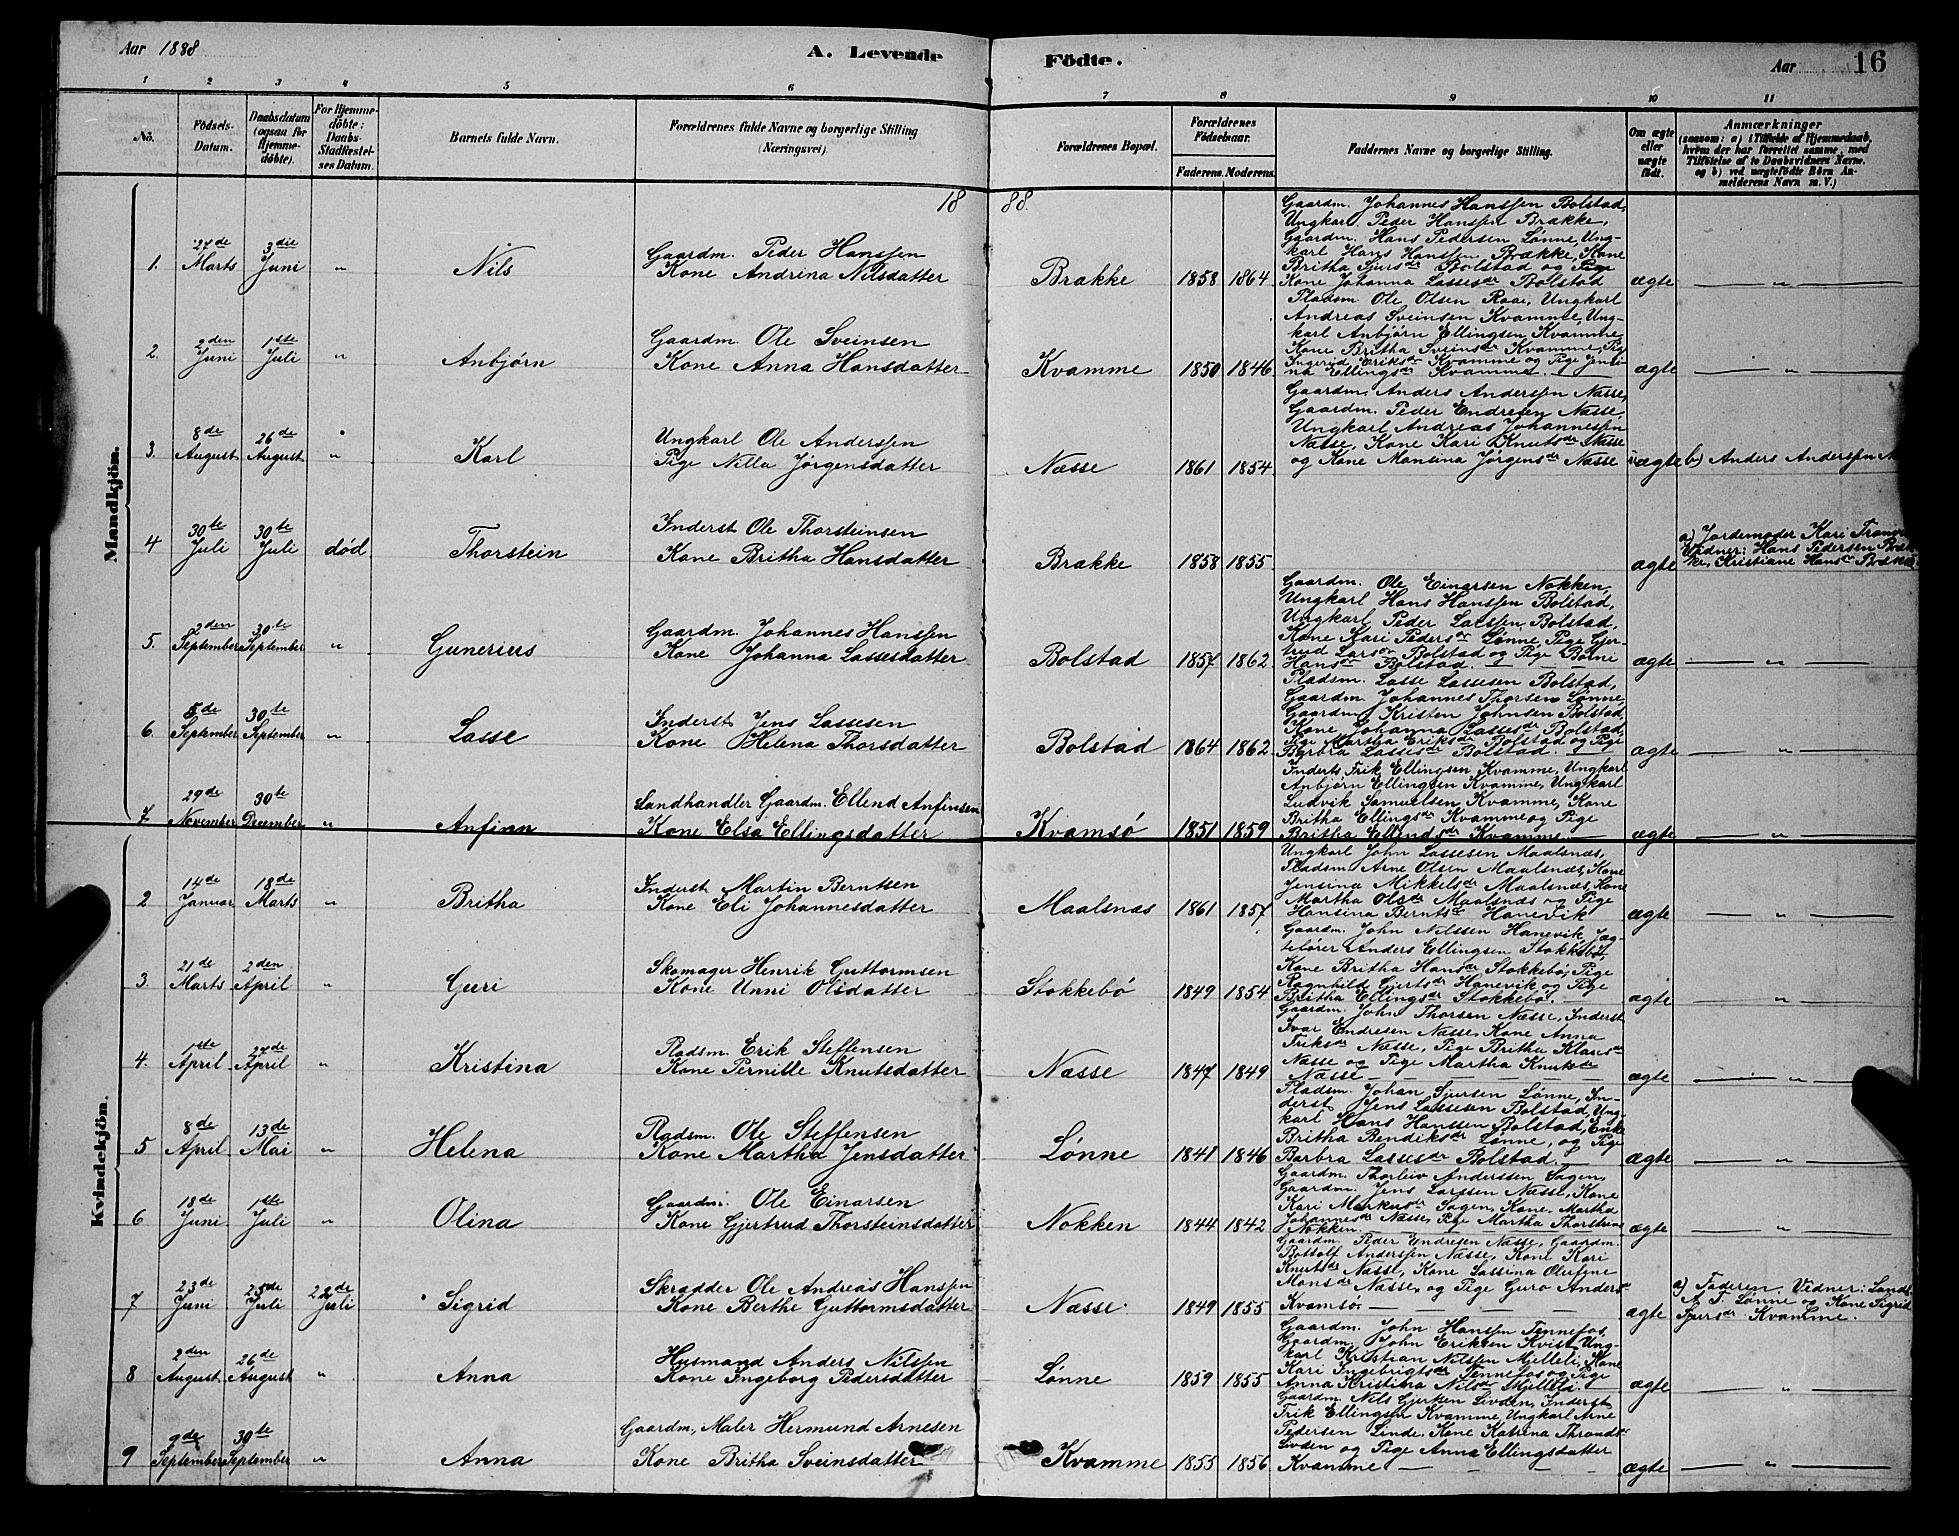 Aar 1888
A. Levende
Födte.
Aar
16
1 2 3 4 5 6 7 8 9 10 11
No.
Födsels-Datum.
Daabsdatum (ogsaa for Hjemme-döbte).
For Hjemme-döbte: Daabs-Stadfæstel-ses Datum.
Barnets fulde Navn.
Forældrenes fulde Navne og borgerlige Stilling (Næringsvei).
Forældrenes Bopæl.
Forældrenes Födselsaar.
Faderens. Moderens.
Faddernes Navne og borgerlige Stilling.
Om ægte eller uægte födt.
Anmærkninger
(saasom: a) i Tilfælde af Hjemmedaab, hvem der har forrettet samme, med Tilföielse af to Daabsvidners Navne, og b) ved uægtefödte Börn An-melderens Navn m. V.)
Mandkjön.
1888.
1. 27de Marts 3die Juni " Nils
Gaardm. Peder Hanssen
Kone Andrina Nilsdatter
Brække 1858 1864
Gaardm. Johannes Hanssen Bolstad,
Ungkarl Peder Hanssen Brække,
Gaardm. Hans Pedersen Lønne, Ung-
karl Hans Hanssen Brække, Kone
Britha Sjursdr Bolstad og Pige
Kone Johanna Lassesdr Bolstad
ægte "
2. 2den Juni 1ste Juli " Anbjørn
Gaardm. Ole Sveinsen
Kone Anna Hansdatter
Kvamme 1850 1846
Pladsm. Ole Olsen Raae, Ungkarl
Andreas Sveinsen Kvamme, Ung-
karl Anbjørn Ellingsen Kvamme,
Kone Britha Sveinsdr Kvamme, Pige
Ingerid Eriksdr Kvamme og Pige Jensi-
na Ellingsdr Kvamme.
ægte "
3. 8de August 26de August " Karl
Ungkarl Ole Anderssen
Pige Nilla Jørgensdatter
Næsse 1861 1854
Gaardm. Anders Anderssen Næsse,
Gaardm. Peder Endresen Næsse,
Ungkarl Andreas Johannessen
Næsse, Kone Kari Knutsdr Næsse
og Kone Monsina Jørgensdr Næsse
uægte b) Anders Anderssen
4 30te Juli 30te Juli død Thorstein
Inderst Ole Thorsteinsen
Kone Britha Hansdatter
Brække 1858 1855
ægte
a) Jordemoder Kari
Vidner: Hans Pedersen Bræk-
ke, Kristiane Hansdr
5. 2den September 30te September " Gunerius
Gaardm. Johannes Hanssen
Kone Johanna Lassesdatter
Bolstad 1857 1862
Gaardm. Ole Einarsen Nokken,
Ungkarl Hans Hanssen Bolstad,
Ungkarl Peder Lassen Bolstad,
Kone Kari Pedersdr Lønne, Pige Gjer-
trud Larsdr Bolstad og Pige
Hansdr Bolstad.
ægte "
6. 5de September 30te September " Lasse
Inderst Jens Lassesen
Kone Helena Thorsdatter
Bolstad 1864 1862
Pladsm. Lasse Lassesen Bolstad,
Gaardm. Johannes Thorsen Lønne,
Gaardm. Kristen Johnsen Bolstad,
Kone Johanna Lassesdr Bolstad,
Pige Martha Eriksdr Bolstad og Pige
Barbra Lassesdr Bolstad.
ægte "
7. 29de November 30te December " Anfinn
Landhandler Gaardm. Ellend Anfinsen
Kone Elsa Ellingsdatter
Kvamsø 1851 1859
Inderts Erik Ellingsen Kvamme, Ungkarl
Anbjørn Ellingsen Kvamme, Ungkarl
Ludvik Samuelsen Kvamme, Kone
Britha Ellingsdr Kvamme og Pige
Britha Ellendsdr Kvamme.
ægte "
Kvindekjön.
2 14de Januar 18de Marts " Britha
Inderst Martin Berntsen
Kone Eli Johannesdatter
Maalsnæs 1861 1857
Ungkarl John Lassesen Maalsnæs,
Pladsm. Arne Olsen Maalsnæs, Kone
Jensina Mikkelsdr Maalsnæs, Kone
Martha Olsdr Maalsnæs og Pige
Hansina Berntsdr Hanevik
ægte "
3. 21de Marts 2den April " Guri
Skomager Henrik Guttormsen
Kone Unni Olsdatter
Stokkebø 1849 1854
Gaardm. John Nilssen Hanevik, Jæg-
tefører Anders Ellingsen Stokkebø,
Kone Britha Hansdr Stokkebø, Pige
Ragnhild Gjertsdr Hanevik og Pige
Britha Ellingsdr Stokkebø.
ægte "
4. 1ste April 27de April " Kristina
Pladsm. Erik Steffensen
Kone Pernille Knutsdatter
Næsse 1847 1849
Gaardm. John Thorsen Næsse, Inderst
Ivar Endresen Næsse, Kone Anna
Eriksdr Næsse, Pige Britha Klausdr
Næsse og Pige Martha Knutsdr
Næsse
ægte "
5 8de April 13de Mai " Helena
Pladsm. Ole Steffensen
Kone Martha Jensdatter
Lønne 1841 1846
Pladsm. Johan Sjursen Lønne, In-
derst Jens Lassesen Bolstad, Ung-
karl Hans Hanssen Bolstad, Enke
Britha Bendiksdr Lønne, og Pige
Barbra Lassesdr Bolstad.
ægte "
6 18de Juni 1ste Juli " Olina
Gaardm. Ole Einarsen
Kone Gjertrud Thorsteinsdatter
Nokken 1844 1842
Gaardm. Thorleiv Anderssen Sagen,
Gaardm. Jens Larssen Næsse, Kone
Kari Markusdr Sagen, Kone Martha
Johannesdr Næsse, Pige Martha Thorsteins
Nokken
ægte "
7 23de Juni 25de Juli 22de Juli Sigrid
Skrædder Ole Andreas Hanssen
Kone Berthe Guttormsdatter
Næsse. 1849 1855
Gaardm. Peder Endresen Næsse, Gaardm.
Bottolf Anderssen Næsse, Kone Kari
Knutsdr Næsse, Kone Lassina Olufine
Monsdr Næsse, og Pige Guro Andersdr
Kvamsø.
ægte
a) Faderen. Vidner: Lands.
A. J. Lønne og Kone Sigrid
Sjursdr Kvamme.
8 2den August 26de August " Anna
Husmand Anders Nilssen
Kone Ingeborg Pedersdatter
Lønne 1859 1855
Gaardm. John Hanssen Tennefos,
Gaardm. John Eriksen Kvist, Ung-
karl Kristian Nilssen Mjelleli, Kone
Kari Ingebrigtsdr Tennefos og Pige
Anna Kristina Nilsdr Mjelleli.
ægte "
9 9de September 30te September " Anna
Gaardm., Maler Hermund Arnesen
Kone Britha Sveinsdatter
Kvamme 1855 1856
Gaardm. Nils Gjerken Livden, Inderst
Erik Ellingsen Kvamme, Ungkarl Arne
Pedersen Linde, Kone Katrina Throndsdr
Livden og Pige Anna Ellingsdatter
Kvamme.
ægte "